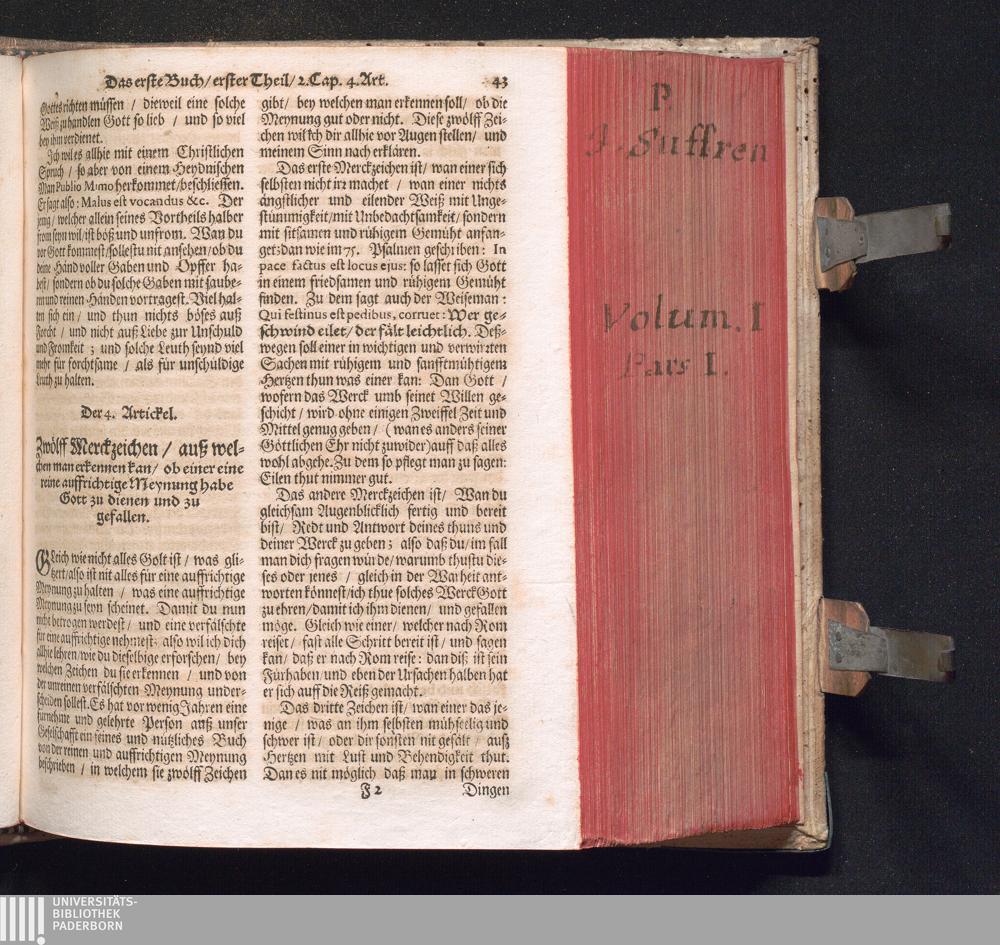 Das erste Buch/ erster Theil/ 2. Cap. 4. Art. 43
Gottes richten müssen / dieweil eine solche
Weiß zu handlen Gott so lieb / und so viel
bey ihm verdienet.
Ich wil es allhie mit einem Christlichen
Spruch / so aber von einem Heydnischen
Man Publio Mimo herkommet/beschliessen.
Er sagt also: Malus est vocandus &c. Der
jenig/ welcher allein seines Vortheils halber
from seyn wil/ist böß und unfrom. Wan du
vor Gott kommest/sollestu nit ansehen/ob du
deine Händ voller Gaben und Opffer ha-
best/ sondern ob du solche Gaben mit saube-
rn und reinen Händen vortragest. Viel hal-
ten sich ein/ und thun nichts böses auß
Forcht / und nicht auß Liebe zur Unschuld
und Fromkeit ; und solche Leuth seynd viel
mehr für forchtsame / als für unschuldige
Leuth zu halten.
Der 4. Artickel.
Zwölff Merckzeichen / auß wel-
chen man erkennen kan/ ob einer eine
reine auffrichtige Meynung habe
Gott zu dienen und zu
gefallen.
GLeich wie nicht alles Golt ist / was gli-
tzert/also ist nit alles für eine auffrichtige
Meynung zu halten / was eine auffrichtige
Meynung zu seyn scheinet. Damit du nun
nicht betrogen werdest/ und eine verfälschte
für eine auffrichtige nehmest; also wil ich dich
allhie lehren/wie du dieselbige erforschen/ bey
welchen Zeichen du sie erkennen / und von
der unreinen verfälschten Meynung under-
scheiden sollest. Es hat vor wenig Jahren eine
fürnehme und gelehrte Person auß unser
Gesellschafft ein feines und nützliches Buch
von der reinen und auffrichtigen Meynung
beschrieben / in welchem sie zwölff Zeichen
gibt/ bey welchen man erkennen soll/ ob die
Meynung gut oder nicht. Diese zwölff Zei-
chen wil ich dir allhie vor Augen stellen/ und
meinem Sinn nach erklären.
Das erste Merckzeichen ist/ wan einer sich
selbsten nicht irr machet / wan einer nichts
ängstlicher und eilender Weiß mit Unge-
stümmigkeit/mit Unbedachtsamkeit/ sondern
mit sittsamen und rühigem Gemüht anfan-
get: dan wie im 75. Psalmen geschriben: In
pace factus est locus ejus: so lasset sich Gott
in einem friedsamen und rühigem Gemüht
finden. Zu dem sagt auch der Weiseman:
Qui festinus est pedibus, corruet: Wer ge-
schwind eilet/ der fält leichtlich. Deß-
wegen soll einer in wichtigen und verwirzten
Sachen mit rühigem und sanfftmühtigem
Hertzen thun was einer kan: Dan Gott /
wofern das Werck umb seinet Willen ge-
schicht / wird ohne einigen Zweiffel Zeit und
Mittel genug geben / (wan es anders seiner
Göttlichen Ehr nicht zuwider) auff daß alles
wohl abgehe. Zu dem so pflegt man zu sagen:
Eilen thut nimmer gut.
Das andere Merckzeichen ist/ Wan du
gleichsam Augenblicklich fertig und bereit
bist/ Redt und Antwort deines thuns und
deiner Werck zu geben; also daß du/ im fall
man dich fragen würde/ warumb thustu die-
ses oder jenes / gleich in der Warheit ant-
worten könnest/ich thue solches Werck Gott
zu ehren/damit ich ihm dienen/ und gefallen
möge. Gleich wie einer/ welcher nach Rom
reiset/ fast alle Schritt bereit ist/ und sagen
kan/ daß er nach Rom reise: dan diß ist sein
Fürhaben/ und eben der Ursachen halben hat
er sich auff die Reiß gemacht.
Das dritte Zeichen ist/ wan einer das je-
nige / was an ihm selbsten mühseelig und
schwer ist/ oder dir sonsten nit gefält / auß
Hertzen mit Lust und Behendigkeit thut.
Dan es nit möglich daß man in schweren
F 2 Dingen
P.
J. Suffren
Volum. I
Pars I.
UNIVERSITÄTS-
BIBLIOTHEK
PADERBORN